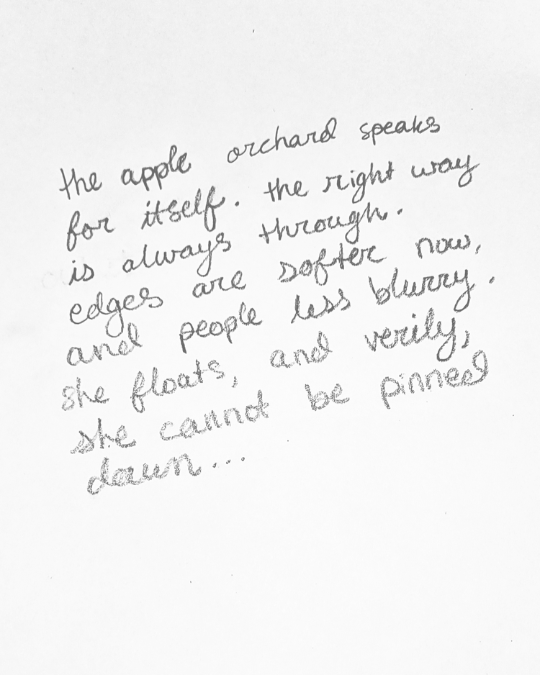 the apple orchard speaks
for itself. the right way
is always through.
edges are softer now,
and people less blurry.
she floats, and verily,
she cannot be pinned
down...